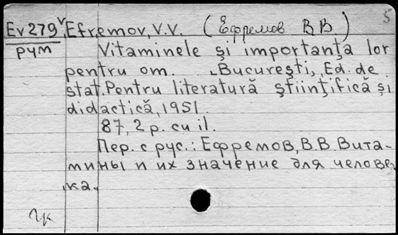 5
Ev279 v Efremov, V.V. (Ефремов В В)
рум Vitaminele şi importanţa lor
pentru om. Bucureşti, Ed. de
stat. Pentru literatură ştiinţifică şi
didactică, 1951.
87, 2 p. cu il.
Пер. с рус.: Ефремов, В.В. Вита-
мины и их значение для челове-
ка.